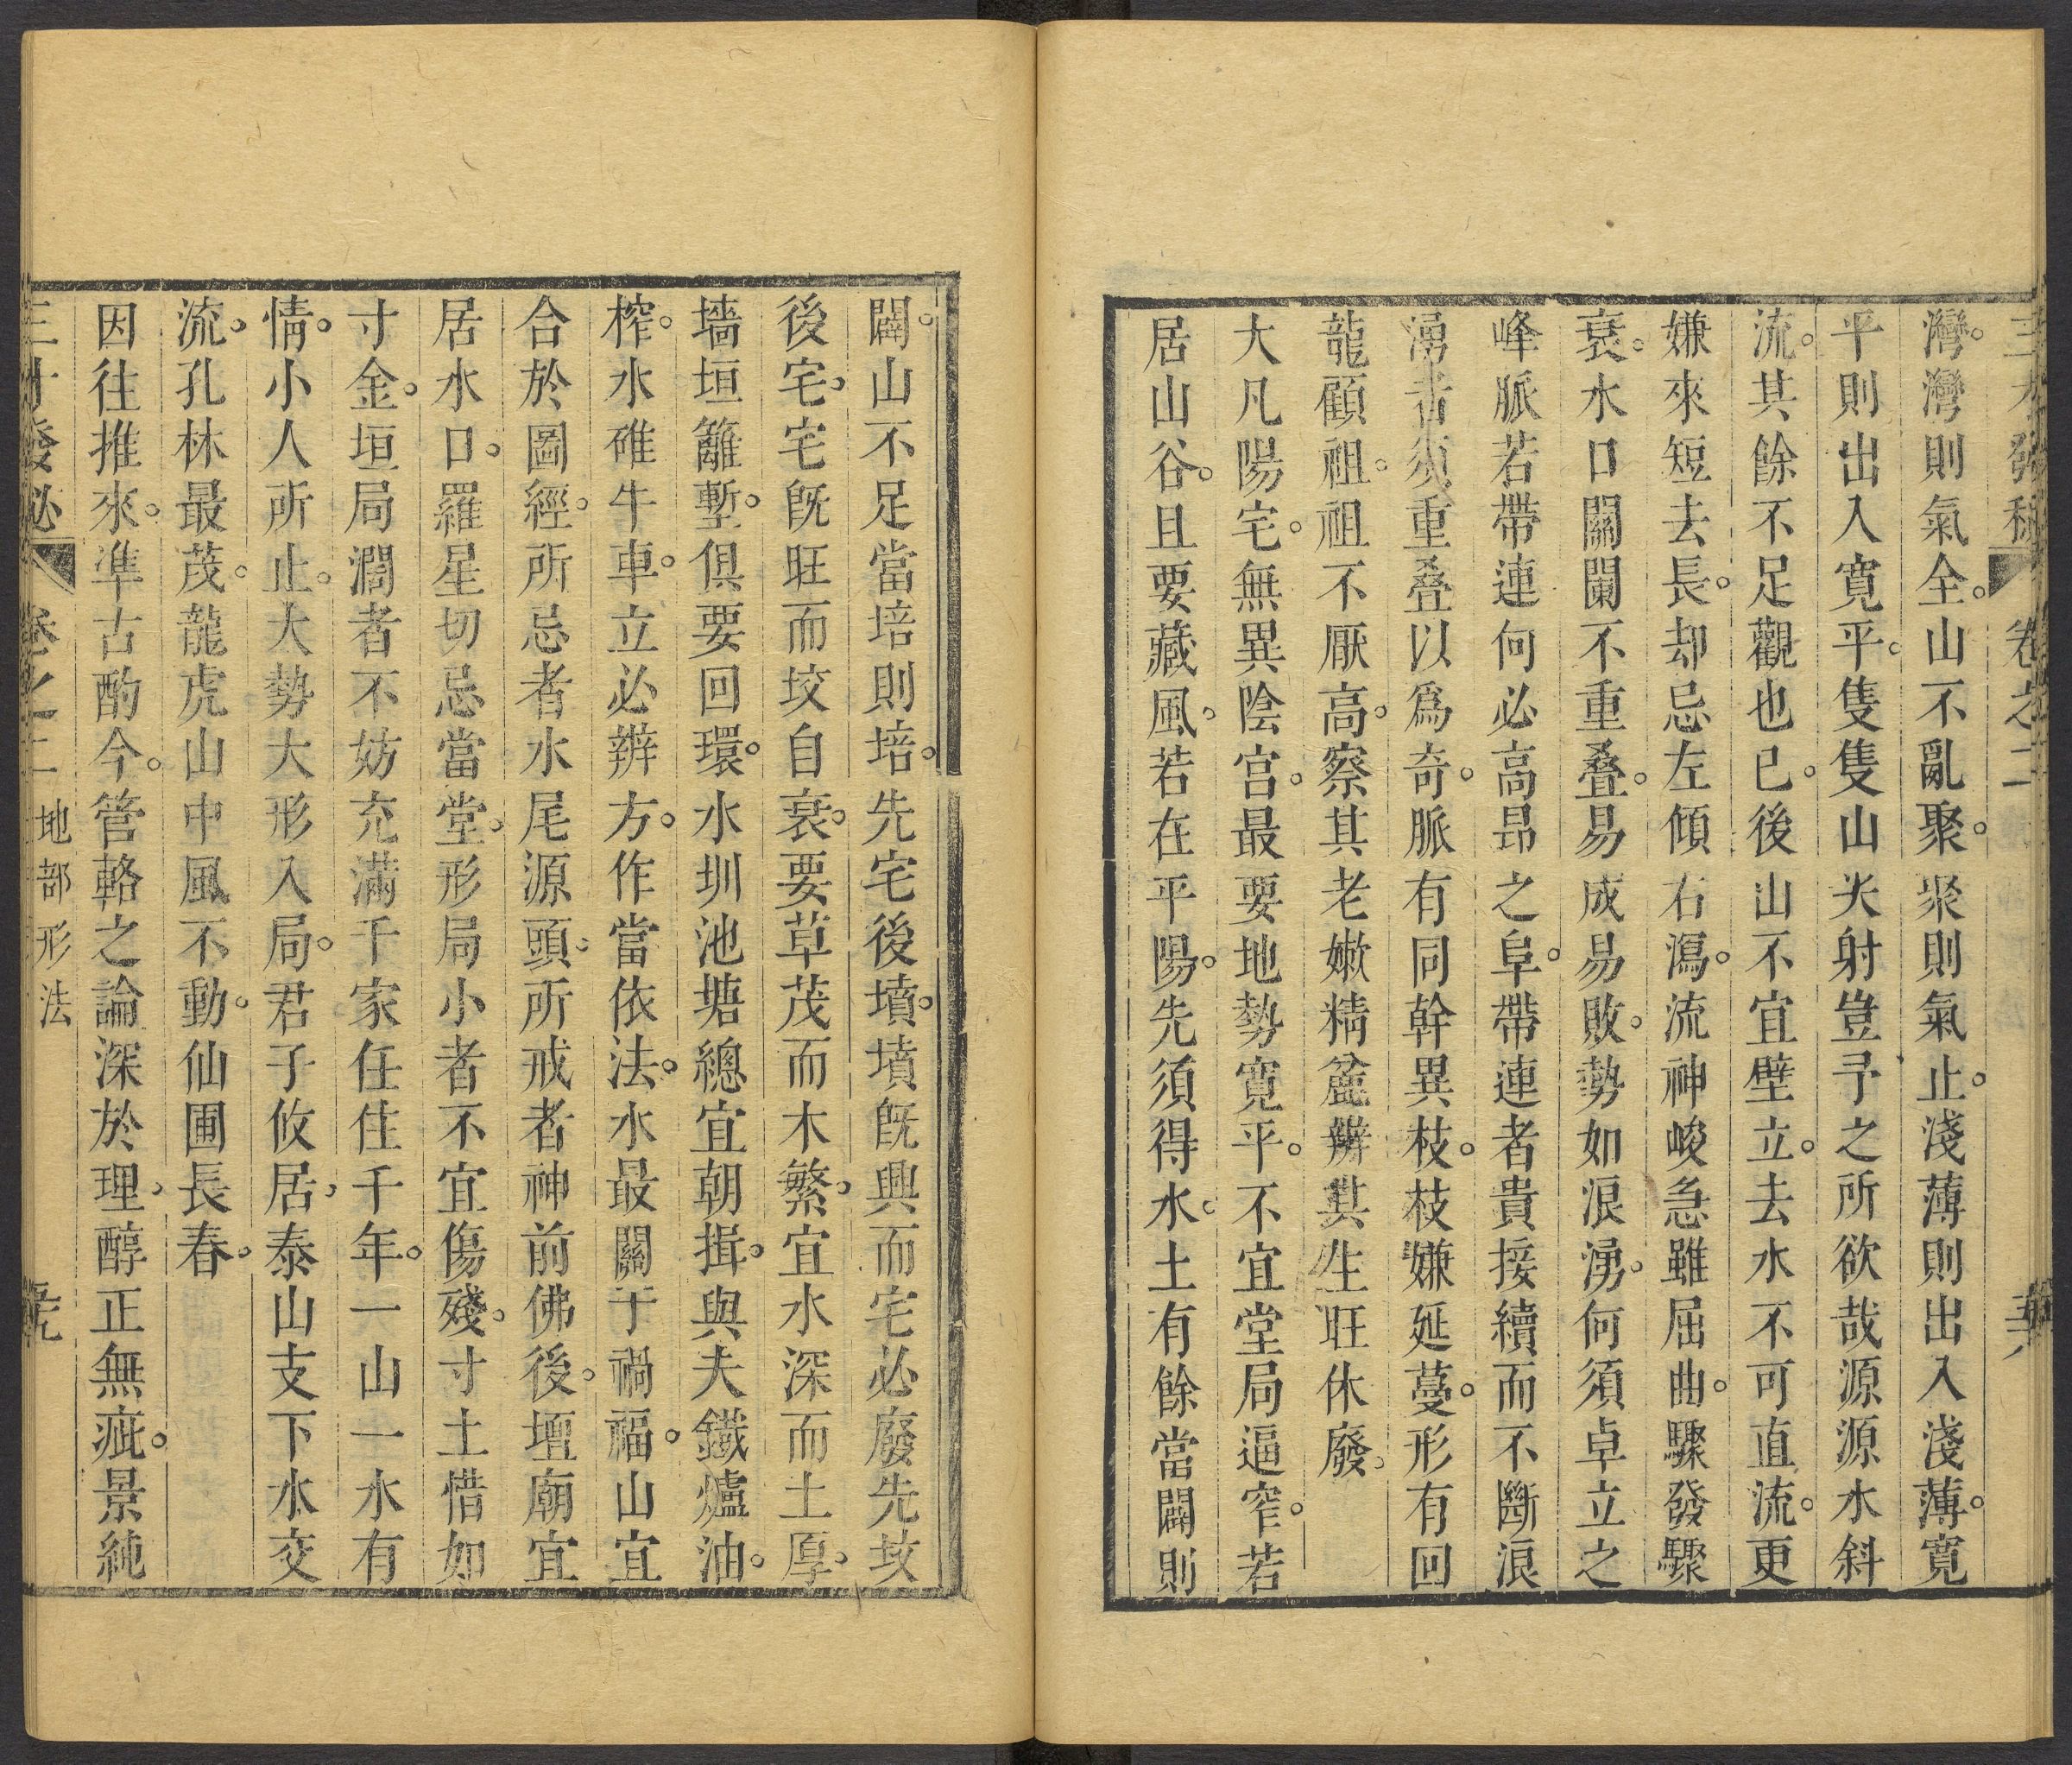 三才發秘 卷之二 兲
灣。灣則氣全。山不亂聚。聚則氣止。淺薄則出入淺薄。寬
平則出入寬平。隻隻山尖射豈予之所欲哉源源水斜
流。其餘不足觀也已。後山不宜壁立。去水不可直流。更
嫌來短去長。却忌左傾右瀉。流神峻急雖屈曲。驟發驟
衰。水口關闌不重叠。易成易敗。勢如浪湧。何須卓立之
峰脈若帶連何必高昂之阜。帶連者貴接續而不斷浪
湧者須重叠以爲奇。脈有同幹異枝。枝嫌延蔓。形有回
龍顧祖。祖不厭高。察其老嫩精麄辨其生旺休廢。
大凡陽宅。無異陰宫。最要地勢寬平。不宜堂局逼窄。若
居山谷。且要藏風。若在平陽。先須得水。土有餘當闢則
闢。山不足當培則培。先宅後墳。墳旣興而宅必廢先坟
後宅。宅旣旺而坟自衰。要草茂而木繁。宜水深而土厚。
墻垣籬塹。俱要回環。水圳池塘總宜朝揖。與夫鐵爐油
榨。水碓牛車。立必辨方。作當依法。水最關于禍福。山宜
合於圖經。所忌者水尾源頭。所戒者神前佛後。壇廟宜
居水口。羅星切忌當堂。形局小者不宜傷殘。寸土惜如
寸金。垣局濶者不妨充滿千家任住千年。一山一水有
情。小人所止。大勢大形入局。君子攸居。泰山支下水交
流。孔林最茂。龍虎山中風不動。仙圃長春。
因往推來。準古酌今。管輅之論深於理。醇正無疵。景純
三才發秘 卷之二 地部形法 㐂